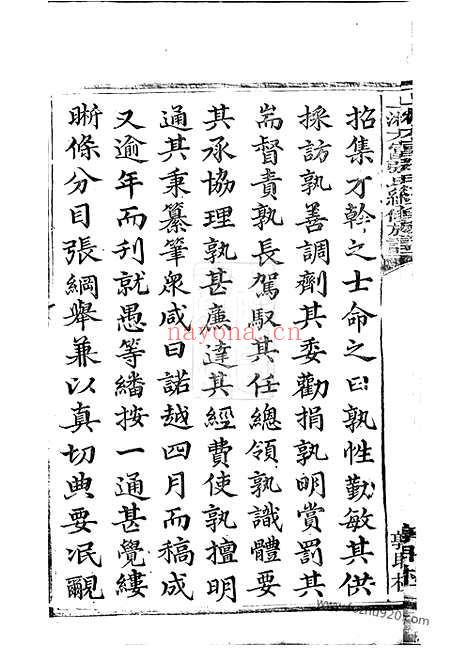 招集才幹之士命之曰孰性勤敏其供
採訪孰善調劑其委勸捐孰明賞罰其
耑督責孰長駕馭其任總領孰識體要
其承協理孰甚廉達其經費使孰擅明
通其秉纂筆衆咸曰諾越四月而稿成
又逾年而刋就愚等繙按一通甚覺縷
晰條分目張綱舉兼以真切典要泯覼
nayona.cn